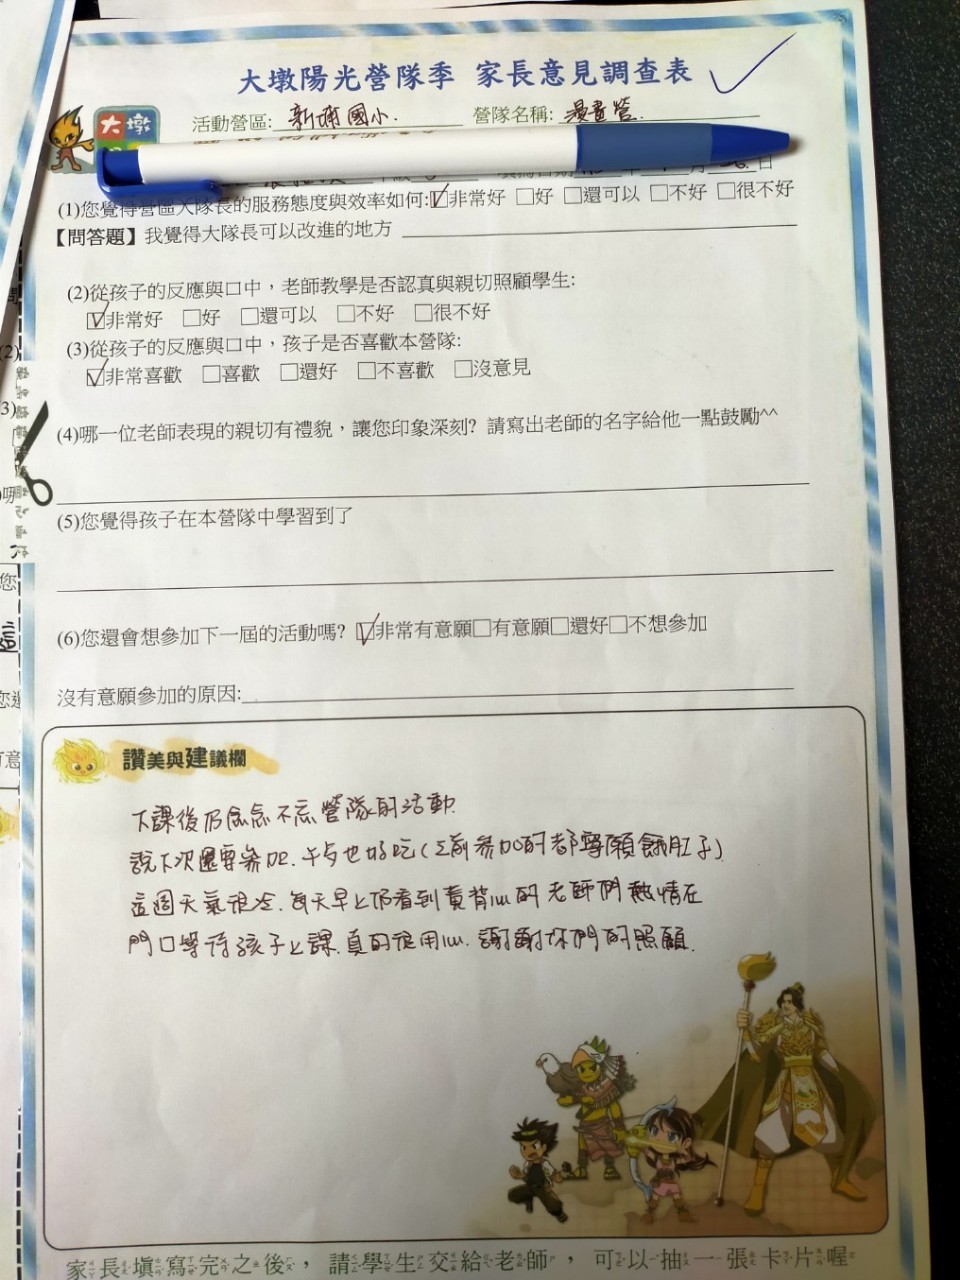 大墩陽光營隊季 家長意見調查表
大墩
活動營區: 新埔國小. 營隊名稱: 漫畫營.
日
(1)您覺得營區大隊長的服務態度與效率如何:☑非常好 □好 □還可以 □不好 □很不好
【問答題】我覺得大隊長可以改進的地方
(2)從孩子的反應與口中，老師教學是否認真與親切照顧學生:
☑非常好 □好 □還可以 □不好 □很不好
(3)從孩子的反應與口中，孩子是否喜歡本營隊:
☑非常喜歡 □喜歡 □還好 □不喜歡 □沒意見
(4)哪一位老師表現的親切有禮貌，讓您印象深刻? 請寫出老師的名字給他一點鼓勵^^
(5)您覺得孩子在本營隊中學習到了
(6)您還會想參加下一屆的活動嗎? ☑非常有意願□有意願□還好□不想參加
沒有意願參加的原因:
讚美與建議欄
下課後仍念念不忘營隊的活動.
說下次還要參加. 午餐也好吃(之前參加的都寧願餓肚子).
這週天氣很冷. 每天早上仍看到賣背心的老師們熱情在
門口等待孩子上課. 真的很用心. 謝謝你們的照顧.
家長填寫完之後，請學生交給老師，可以抽一張卡片喔